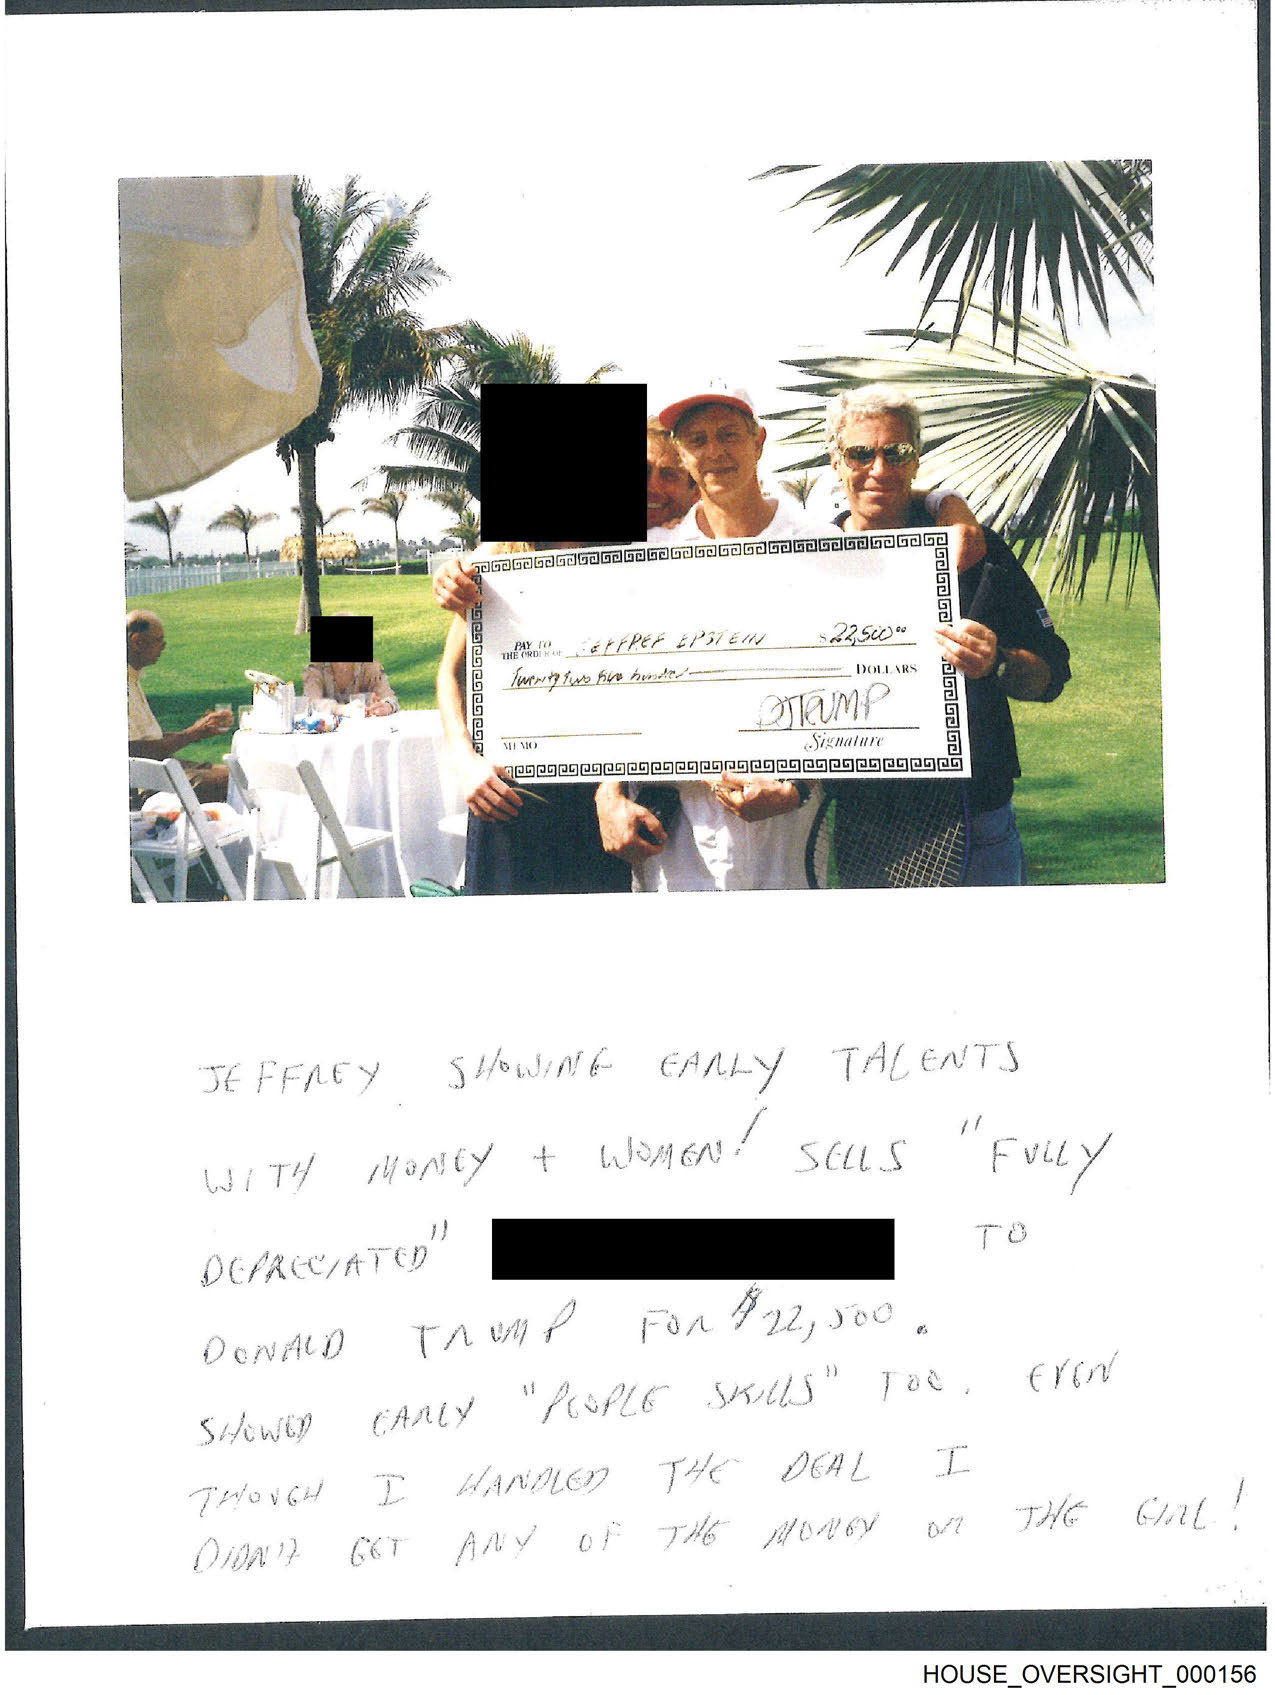 PAY TO
THE ORDER OF JEFFREF EPSTEIN $22,500⁰⁰
Twenty two five hundred DOLLARS
DJTRUMP
MEMO Signature
JEFFREY SHOWING EARLY TALENTS
WITH MONEY + WOMEN! SELLS "FULLY
DEPRECIATED" TO
DONALD TRUMP FOR $22,500.
SHOWED EARLY "PEOPLE SKILLS" TOO. EVEN
THOUGH I HANDLED THE DEAL I
DIDN'T GET ANY OF THE MONEY OR THE GIRL!
HOUSE_OVERSIGHT_000156